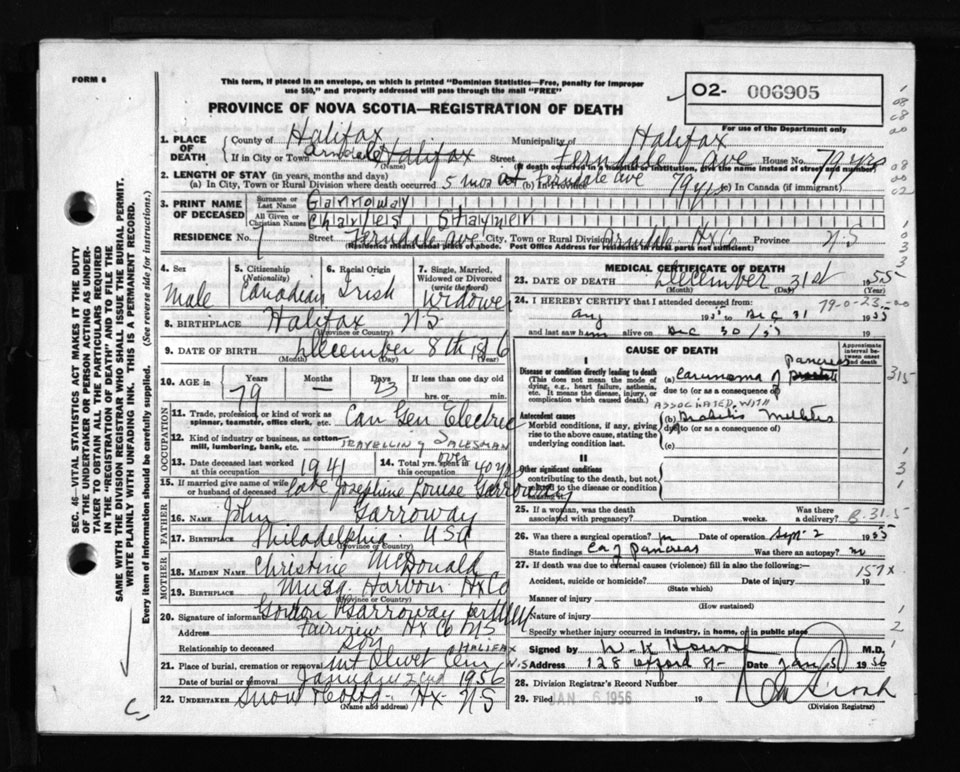 FORM 6
This form, if placed in an envelope, on which is printed "Dominion Statistics—Free, penalty for improper
use $50," and property addressed will pass through the mail "FREE"
O2- 006905
For use of the Department only
PROVINCE OF NOVA SCOTIA—REGISTRATION OF DEATH
1. PLACE OF DEATH County of Halifax Municipality of Halifax
If in City or Town Armdale Halifax Street Ferndale Ave House No. 79 yrs
(Name) (If death occurred in a hospital or institution, give the name instead of street and number)
2. LENGTH OF STAY (in years, months and days)
(a) In City, Town or Rural Division where death occurred 5 mos at Ferndale Ave (b) In Province 79 yrs (c) In Canada (if immigrant)
3. PRINT NAME OF DECEASED Surname or Last Name Garroway
All Given or Christian Names Charles Stayner
RESIDENCE No. 7 Street Ferndale Ave City, Town or Rural Division Armdale Hx Co Province N S
(Residence means usual place of abode. Post Office Address for residents in rural parts not sufficient)
4. Sex Male
5. Citizenship (Nationality) Canadian
6. Racial Origin Irish
7. Single, Married, Widowed or Divorced (write the word) Widower
8. BIRTHPLACE Halifax N S
(Province or Country)
9. DATE OF BIRTH December 8th 1876
(Month) (Day) (Year)
10. AGE in Years 79 Months — Days 23 If less than one day old
hrs. or min.
OCCUPATION
11. Trade, profession or kind of work as spinner, teamster, office clerk, etc. Can Gen Electric
12. Kind of industry or business, as cotton-mill, lumbering, bank, etc. TRAVELLING SALESMAN
13. Date deceased last worked at this occupation 1941
14. Total yrs. spent in this occupation over 40 yrs
15. If married give name of wife or husband of deceased Late Josephine Louise Garroway
FATHER
16. NAME John Garroway
17. BIRTHPLACE Philadelphia USA
(Province or Country)
MOTHER
18. MAIDEN NAME Christine McDonald
19. BIRTHPLACE Musq Harbour Hx Co
(Province or Country)
20. Signature of informant Gordon Garroway
Address Fairview Hx Co N S
Relationship to deceased Son
21. Place of burial, cremation or removal Mt Olivet Cem HALIFAX N.S
Date of burial or removal January 2nd 1956
22. UNDERTAKER Snow Hx N S
(Name and address)
MEDICAL CERTIFICATE OF DEATH
23. DATE OF DEATH December 31st 1955
(Month) (Day) (Year)
79-0-23-00
24. I HEREBY CERTIFY that I attended deceased from:
Aug 1955 to Dec 31 1955
and last saw him alive on Dec 30/55 19
CAUSE OF DEATH
Approximate interval between onset and death
I
Disease or condition directly leading to death
(This does not mean the mode of dying, e.g., heart failure, asthenia, etc. It means the disease, injury, or complication which caused death.)
(a) Carcinoma of Pancreas
due to (or as a consequence of)
315
ASSOCIATED WITH
Antecedent causes
Morbid conditions, if any, giving rise to the above cause, stating the underlying condition last.
(b) Diabetis Mellitus
due to (or as a consequence of)
(c)
II
Other significant conditions
contributing to the death, but not related to the disease or condition causing it.
25. If a woman, was the death associated with pregnancy? Duration weeks. Was there a delivery? B-31.5
26. Was there a surgical operation? Date of operation Sept-2 1955
State findings Ca of pancreas Was there an autopsy?
27. If death was due to external causes (violence) fill in also the following:
157x
Accident, suicide or homicide? Date of injury 19
(State which)
Manner of injury
(How sustained)
Nature of injury
Specify whether injury occurred in industry, in home, or in public place
Signed by M.D.
Address 128 Oxford St- Date Jan 5 1956
28. Division Registrar's Record Number
29. Filed JAN 6 1956 19
(Division Registrar)
SEC. 46—VITAL STATISTICS ACT MAKES IT THE DUTY
OF THE UNDERTAKER OR PERSON ACTING AS UNDER-
TAKER TO OBTAIN ALL THE PARTICULARS REQUIRED
IN THE "REGISTRATION OF DEATH" AND TO FILE THE
SAME WITH THE DIVISION REGISTRAR WHO SHALL ISSUE THE BURIAL PERMIT.
WRITE PLAINLY WITH UNFADING INK. THIS IS A PERMANENT RECORD.
Every item of information should be carefully supplied. (See reverse side for instructions.)